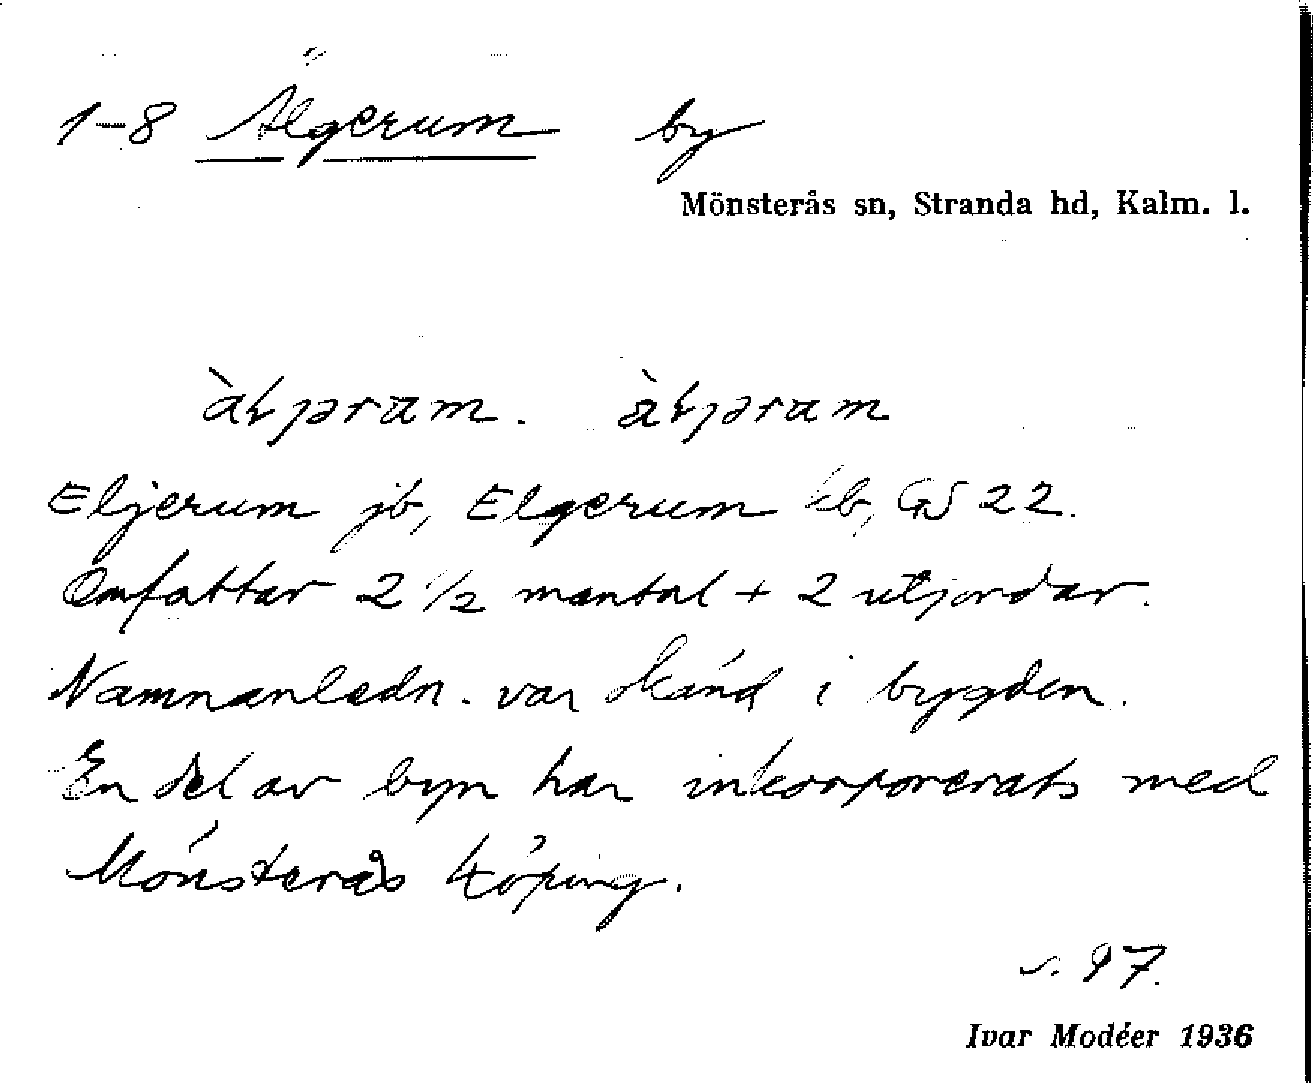 1-8 Älgerum by
Mönsterås sn, Stranda hd, Kalm. l.
Eljerum jb, Elgerum kb, GS 22.
Omfattar 2 1/2 mantal + 2 utjordar.
Namnanledn. var okänd i bygden.
En del av byn har inkorporerats med
Mönsterås köping.
s. 97.
Ivar Modéer 1936